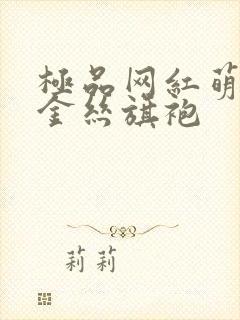 極品网紅萌
金丝旗袍
莉莉